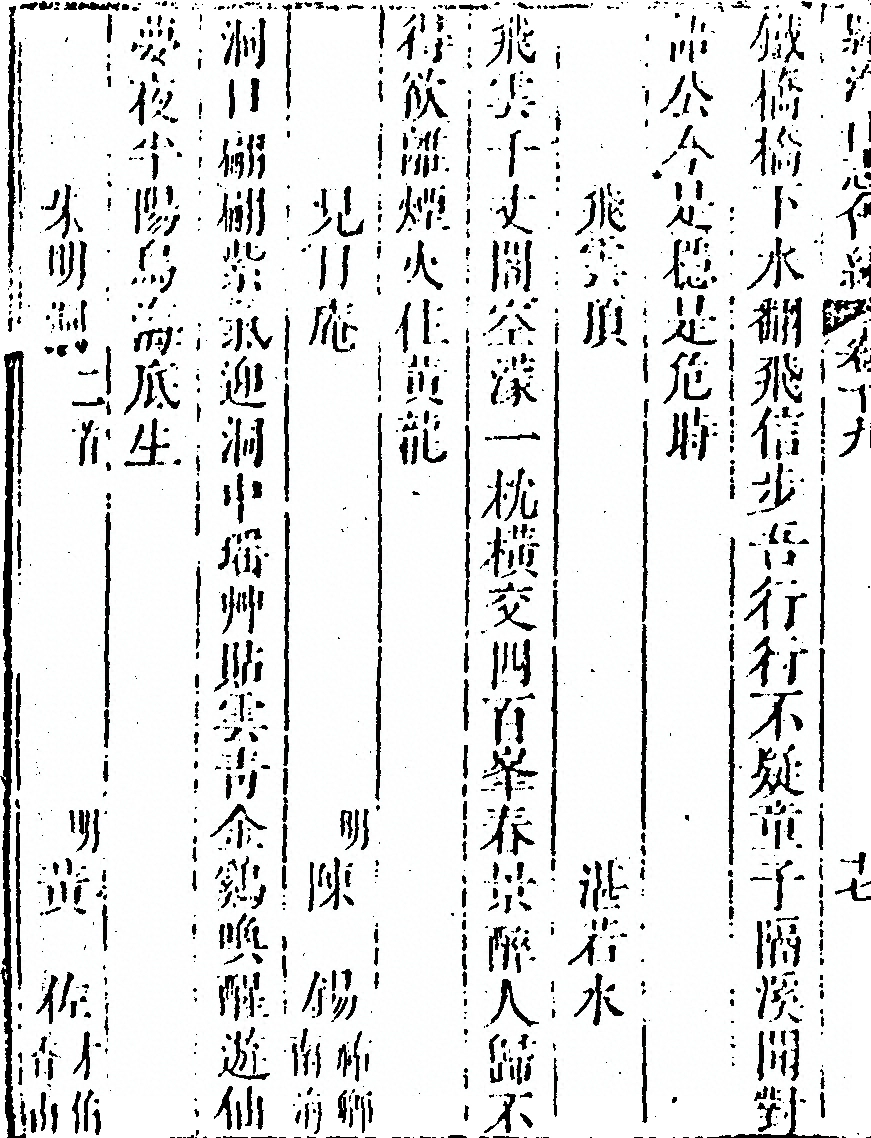 羅浮山志會編 卷十九 十七
鐵橋橋下水翻飛信步吾行行不疑童子隔溪開對
語公今是穩是危時
飛雲頂 湛若水
飛雲千丈闊空濛一枕橫交四百峯春景醉人歸不
得欲離煙火住黃龍
見日庵 明陳 錫祐卿南海
洞口硼硼紫氣迎洞中瑤艸貼雲青金鷄喚醒遊仙
夢夜半陽烏海底生
朱明洞二首 明黃 佐才伯香山